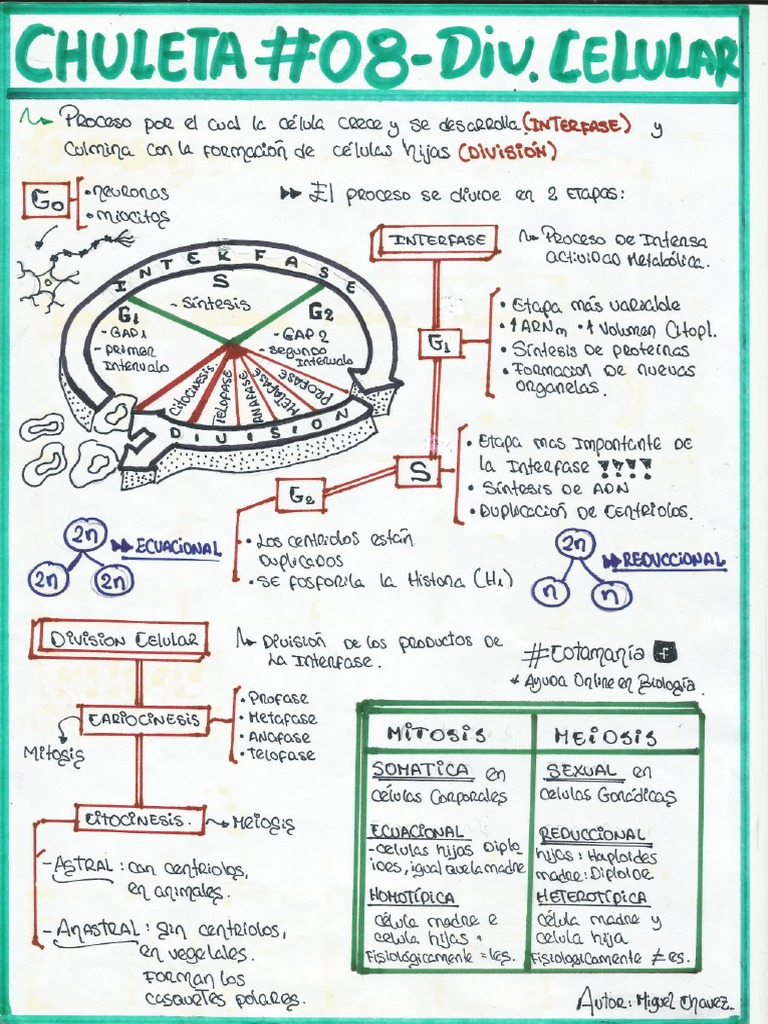 CHULETA #08-DIV. CELULAR
Proceso por el cual la célula crece y se desarrolla (INTERFASE) y
culmina con la formación de células hijas (DIVISIÓN)
G0
• Neuronas
• Miocitos
El proceso se divide en 2 Etapas:
INTERFASE
S
- Síntesis
G1
- GAP1
- Primer
Intervalo
G2
- GAP 2
- Segundo
Intervalo
CITOCINESIS
TELOFASE
ANAFASE
METAFASE
PROFASE
DIVISION
INTERFASE
Proceso de Intensa
actividad Metabólica.
G1
• Etapa más variable
• ↑ARNm • ↑Volumen Citopl.
• Síntesis de proteínas
• Formación de nuevas
organelas.
S
• Etapa mas Importante de
la Interfase
• Síntesis de ADN
• Duplicación de Centriolos.
G2
• Los centriolos están
Duplicados
• SE fosforila la Histona (H1)
2n
2n 2n
ECUACIONAL
2n
n n
REDUCCIONAL
DIVISION CELULAR
División de los productos de
La Interfase.
#Cotamania f
* Ayuda Online en Biología.
CARIOCINESIS
Mitosis
• Profase
• Metafase
• Anafase
• Telofase
CITOCINESIS.
Meiosis
- ASTRAL: con centriolos,
en animales.
- ANASTRAL: Sin centriolos,
en vegetales.
Forman los
casquetes polares.
MITOSIS
SOMATICA en
células Corporales
ECUACIONAL
- celulas hijas Diplo-
ides, igual que la madre
HOMOTÍPICA
célula madre e
celula hijas
Fisiológicamente = les.
MEIOSIS
SEXUAL en
celulas Gonádicas
REDUCCIONAL
hijas: Haploides
madre: Diploide
HETEROTÍPICA
Célula madre y
celula hija
Fisiológicamente ≠ es.
Autor: Miguel Chavez.